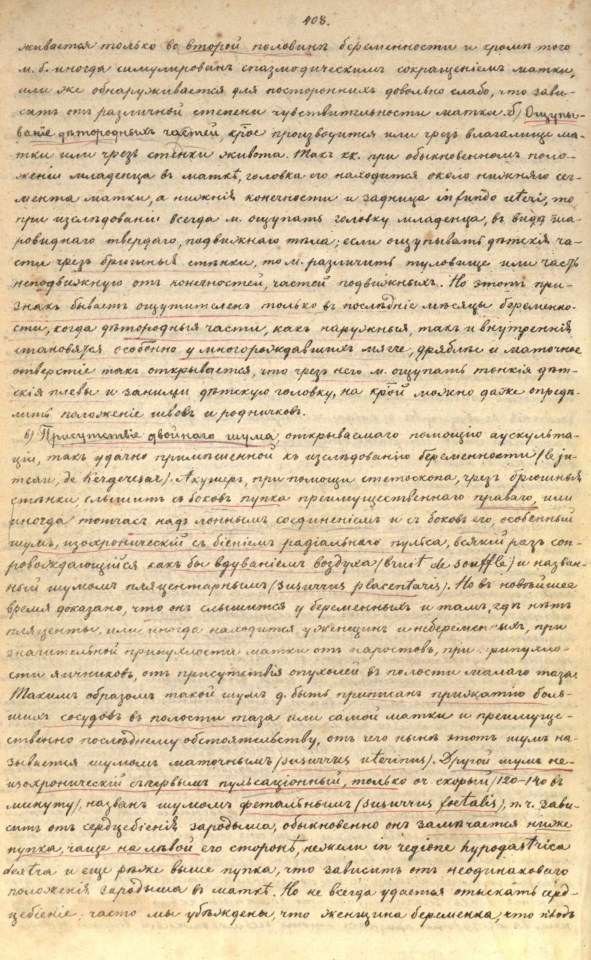 108.
живается только во второй половинѣ беременности и кромѣ того
м. б. иногда симулированъ спазмодическимъ сокращеніемъ матки,
или же обнаруживается для постороннихъ довольно слабо, что зави-
ситъ отъ различной степени чувствительности матки. б) Ощупы-
ваніе дѣтородныхъ частей, к͠рое производится или чрезъ влагалище ма-
тки или чрезъ стѣнки живота. Такъ кк. при обыкновенномъ поло-
женіи младенца въ маткѣ, головка его находится около нижняго сег-
мента матки, а нижнія конечности и задница in fundo uteri, то
при изслѣдованіи всегда м. ощупать головку младенца, въ видѣ ша-
ровиднаго твердаго, подвижнаго тѣла; если ощупывать дѣтскія ча-
сти чрезъ брюшныя стѣнки, то м. различить туловище или часть
неподвижную отъ конечностей, частей подвижныхъ. Но этотъ при-
знакъ бываетъ ощутителенъ только въ послѣдніе мѣсяцы беременно-
сти, когда дѣтородныя части, какъ наружныя, такъ и внутреннія
становятся особенно у многорождавшихъ мягче, дряблѣе и маточное
отверстіе такъ открывается, что чрезъ него м. ощупать тонкія дѣт-
скія плевы и за ними дѣтскую головку, на к͠рой можно даже опредѣ-
лить положеніе швовъ и родничковъ.
в) Присутствіе двойнаго шума, открываемаго помощію аускульта-
ціи, такъ удачно примѣненной къ изслѣдованію беременности (le ju-
meau, de Kergaresar). Акушеръ, при помощи стетоскопа, чрезъ брюшныя
стѣнки, слышитъ съ боковъ пупка преимущественнаго праваго, или
иногда тотчасъ надъ лоннымъ соединеніемъ и съ боковъ его, особенный
шумъ, изохроническій съ біеніемъ радіальнаго пульса, всякій разъ соп-
ровождающійся какъ бы вдуваніемъ воздуха (bruit de souffle) и назван-
ный шумомъ пляцентарнымъ (susurrus placentaris). Но въ новѣйшее
время доказано, что онъ слышится у беременныхъ и тамъ, гдѣ нѣтъ
пляценты, или иногда находится у женщинъ и небеременныхъ, при
значительной припухлости матки отъ наростовъ, при припухло-
сти яичниковъ, отъ присутствія опухолей въ полости малаго таза.
Такимъ образомъ такой шумъ д. быть приписанъ прижатію боль-
шихъ сосудовъ въ полости таза или самой матки и преимуще-
ственно послѣднему обстоятельству, отъ чего нынѣ этотъ шумъ на-
зывается шумомъ маточнымъ (susurrus uterinus). Другой шумъ не-
изохроническій съ первымъ пульсаціонный, только оч. скорый (120-140 въ
минуту), названъ шумомъ фетальнымъ (susurrus foetalis), п. ч. зави-
ситъ отъ сердцебіенія зародыша, обыкновенно онъ замѣчается ниже
пупка, чаще на лѣвой его сторонѣ, нежели in regione hypogastrica
dextra и еще рѣже выше пупка, что зависитъ отъ неодинаковаго
положенія зародыша въ маткѣ. Но не всегда удается отыскать серд-
цебіеніе, часто мы убѣждены, что женщина беременна, что плодъ